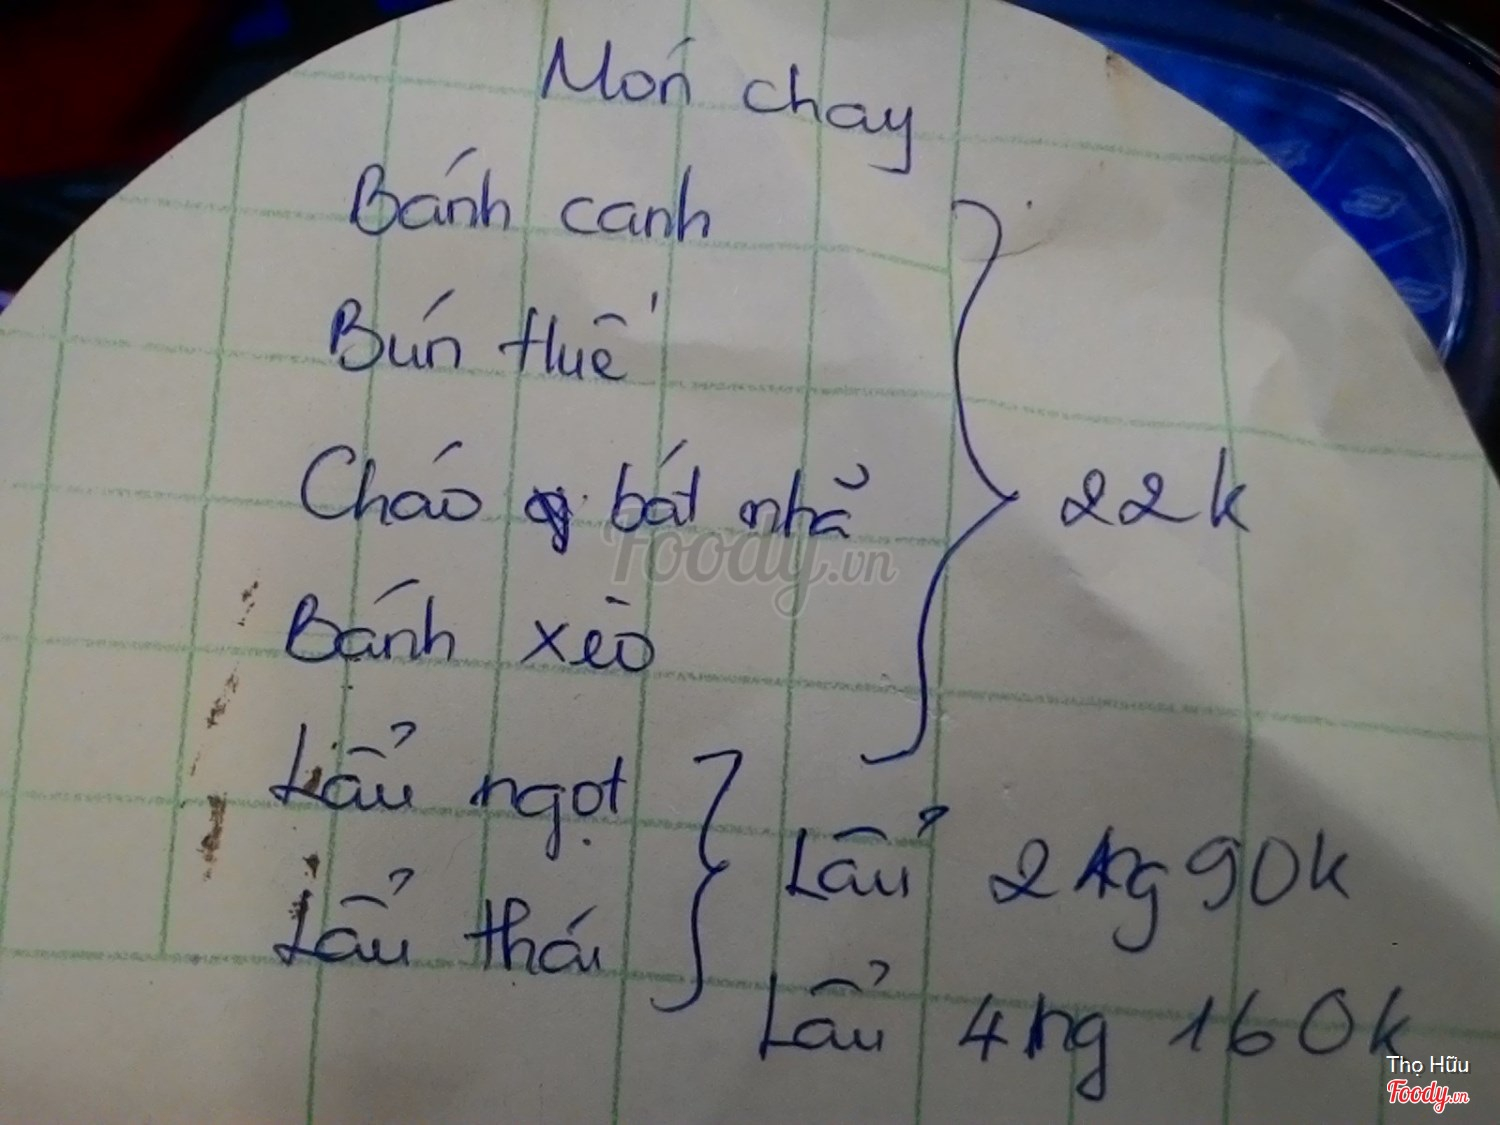 Món chay
Bánh canh
Bún Huế
Cháo bát nhã
22k
Bánh xèo
Lẩu ngọt
Lẩu thái
Lẩu 2 ng 90k
Lẩu 4 ng 160k
Foody.vn
Thọ Hữu
Foody.vn